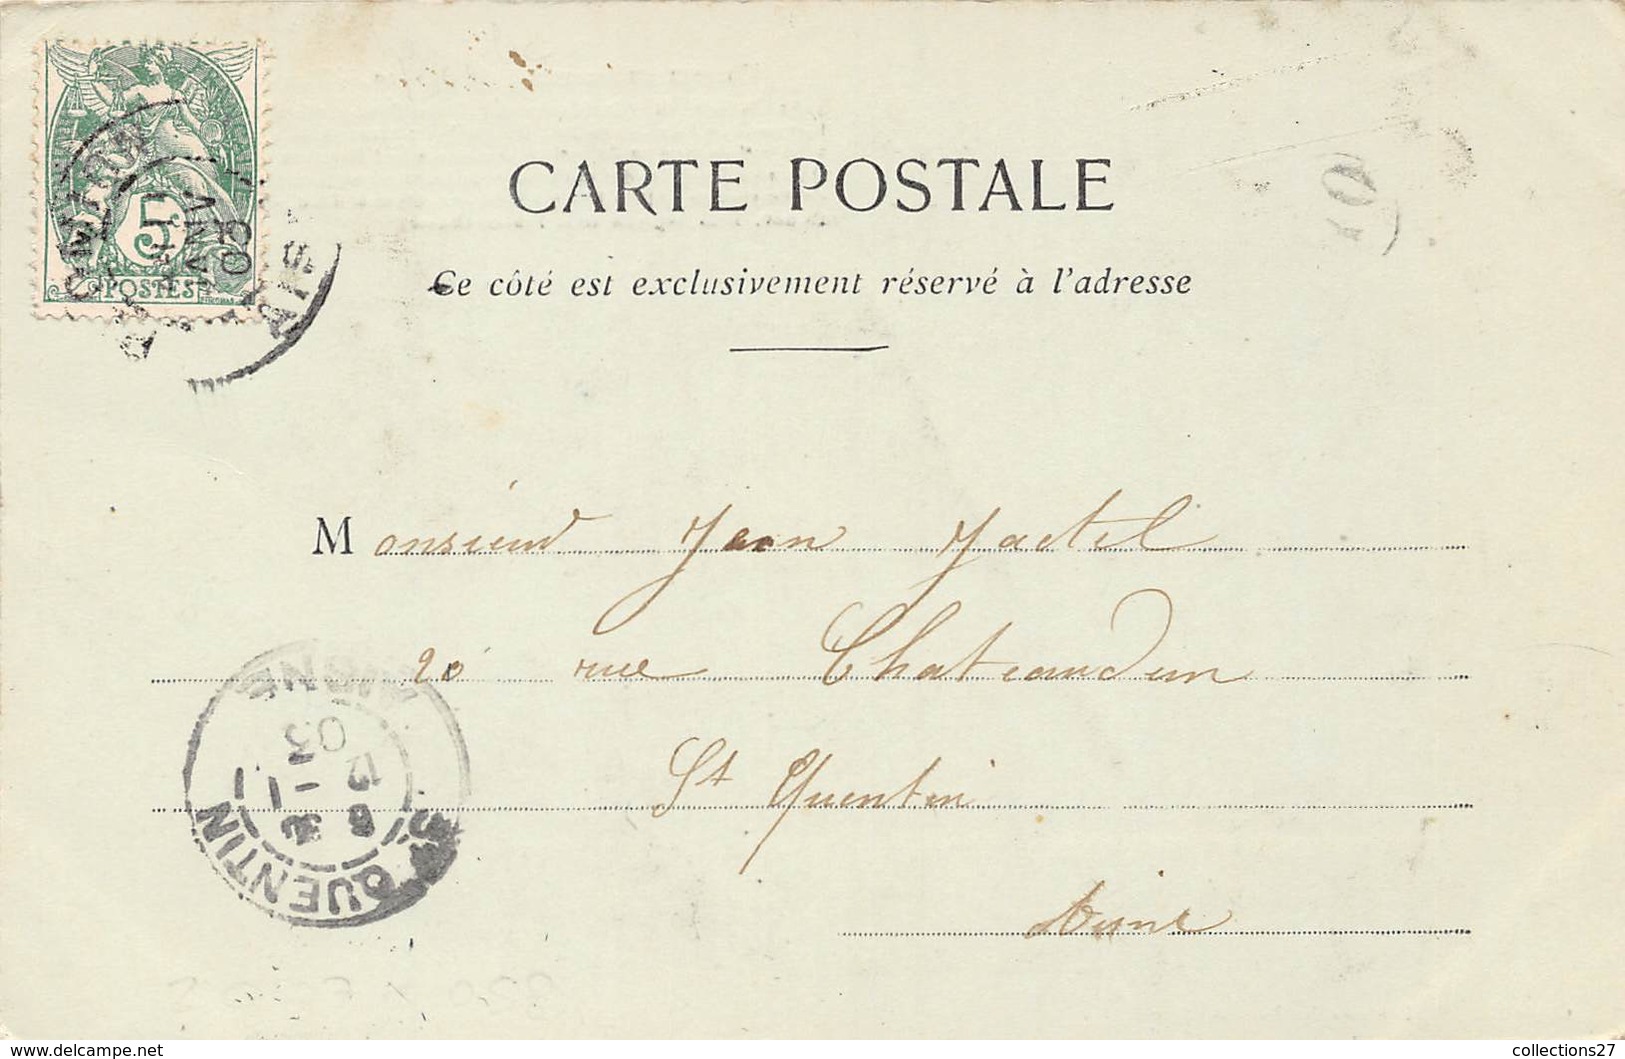 5
POSTES
CARTE POSTALE
Ce côté est exclusivement réservé à l'adresse
Monsieur Jean
20 rue Chateaudun
St Quentin
Aisne
AISNE
03
12
ST QUENTIN
www.delcampe.net
collections27